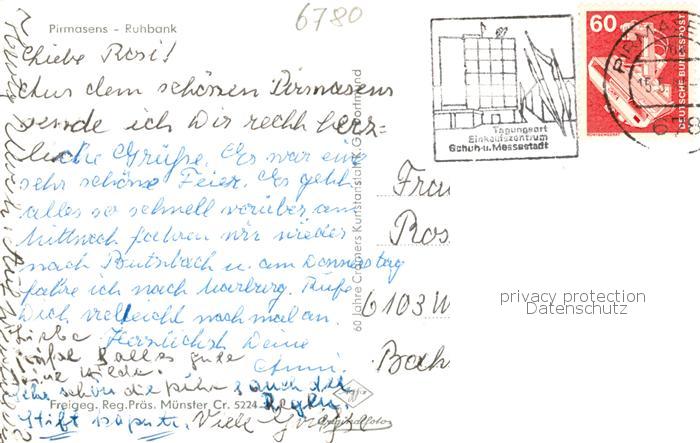 6780
Pirmasens - Ruhbank
Liebe Rosi!
Aus dem schönen Pirmasens
sende ich Dir recht herz-
liche Grüße. Es war eine
sehr schöne Feier. Es geht
alles so schnell vorüber am
Mittwoch fahren wir wieder
nach Butzbach u. am Donnerstag
fahre ich nach Marburg. Rufe
Dich vielleicht noch mal an.
Herzlichst Deine
Anni.
Liebe
Grüße alles gute
die
auch die
Freigeg. Reg.Präs. Münster Cr. 5224
Stift kaputt. Viele Grüße
60 Jahre Cramers Kunstanstalt KG, Dortmund
Tagungsort
Einkaufszentrum
Schuh-u.Messestadt
60
DEUTSCHE BUNDESPOST
Frau
Ros
6103 W
Bach
privacy protection
Datenschutz